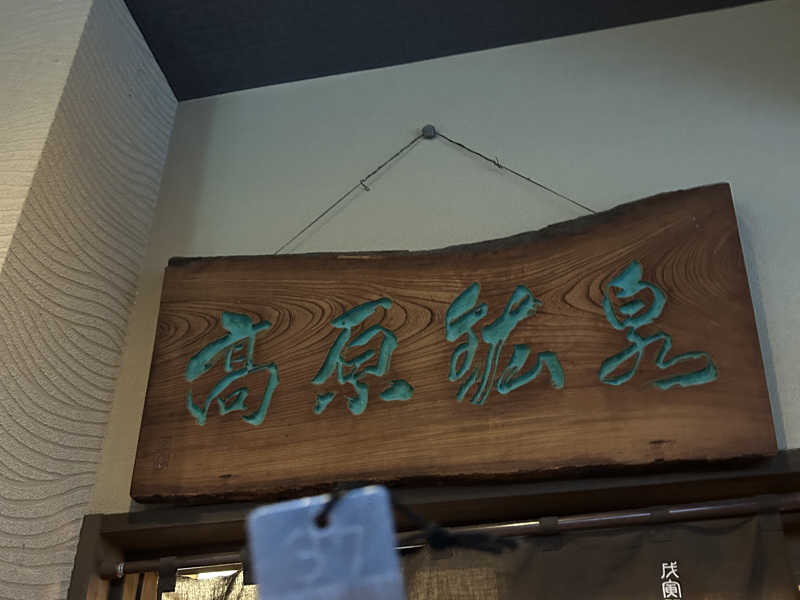 高原鉱泉
37
戊寅